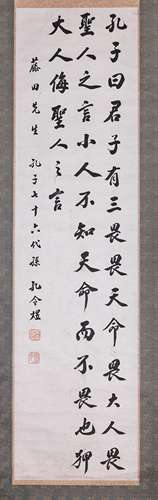 孔子曰君子有三畏畏天命畏大人畏
聖人之言小人不知天命而不畏也狎
大人侮聖人之言
藤田先生 孔子七十六代孫 孔令煜